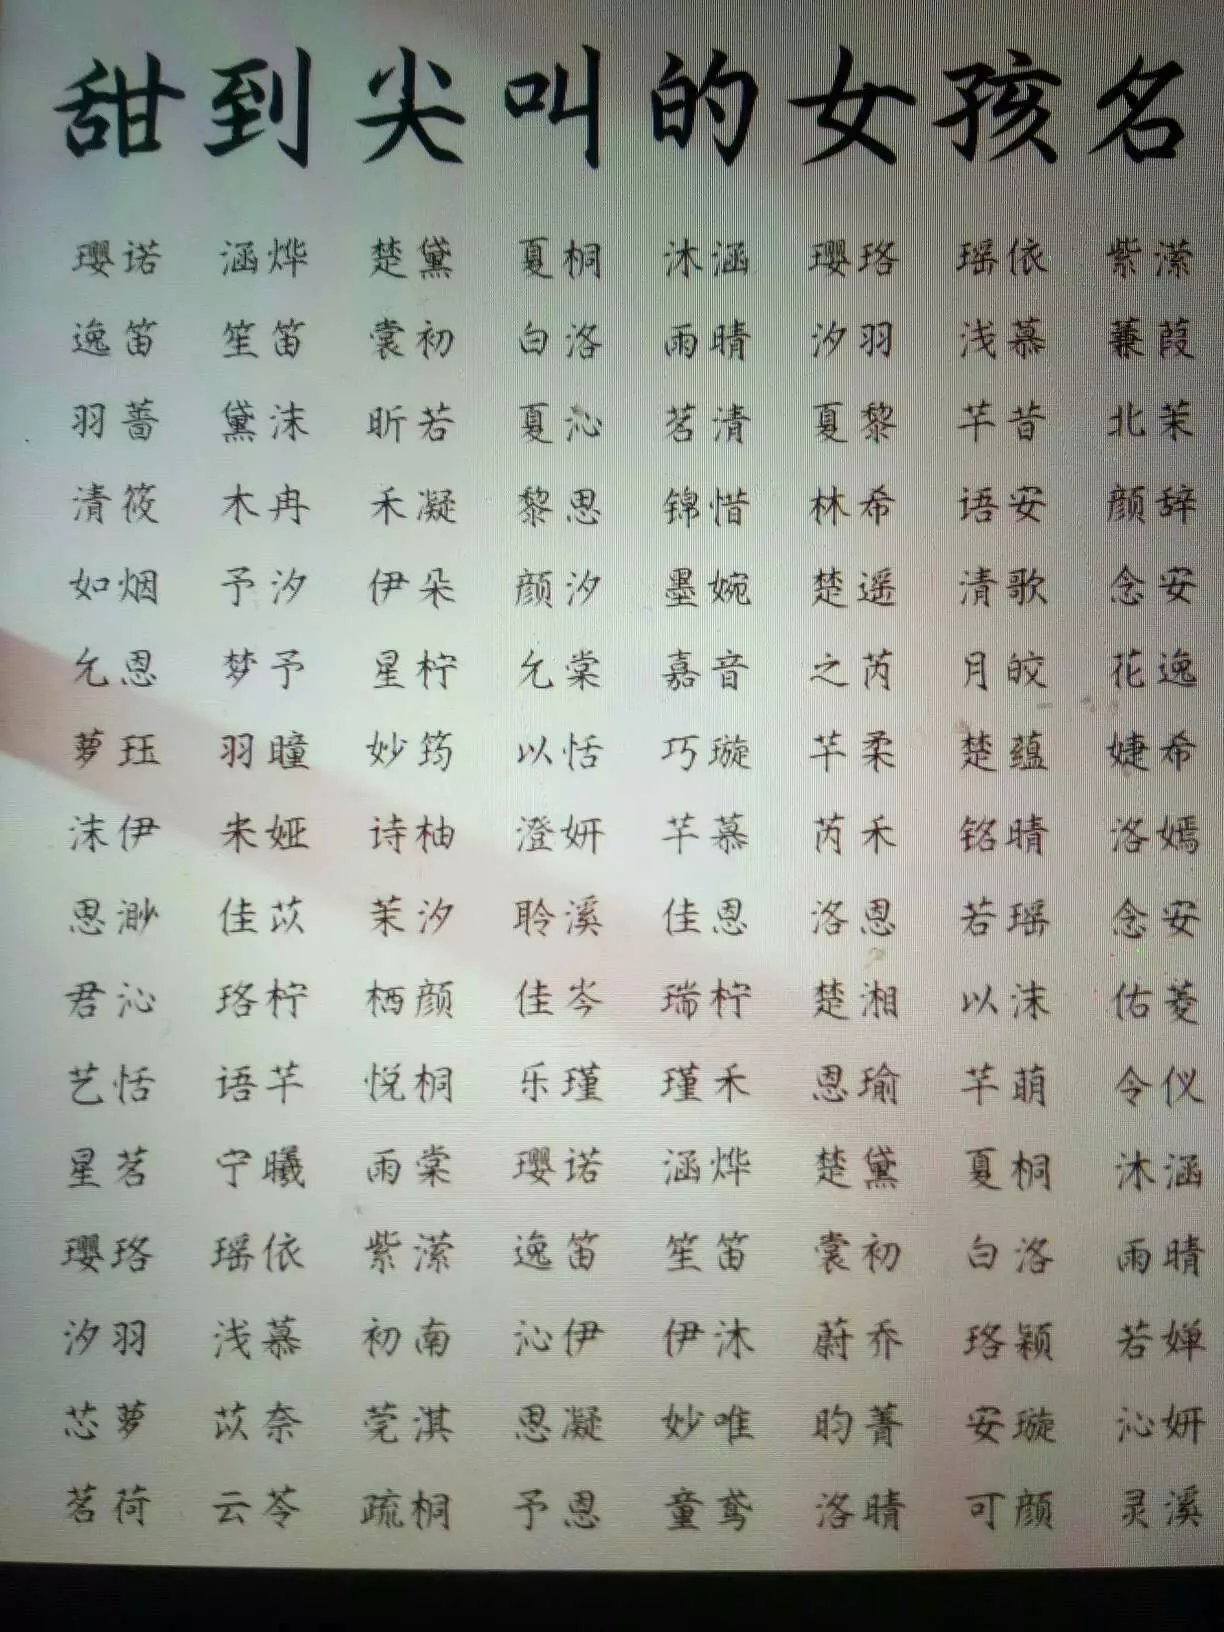 甜到尖叫的女孩名
璎诺 涵烨 楚黛 夏桐 沐涵 璎珞 瑶依 紫潆
逸笛 笙笛 裳初 白洛 雨晴 汐羽 浅慕 蒹葭
羽蔷 黛沫 昕若 夏沁 茗清 夏黎 芊昔 北茉
清筱 木冉 禾凝 黎思 锦惜 林希 语安 颜辞
如烟 予汐 伊朵 颜汐 墨婉 楚遥 清歌 念安
允恩 梦予 星柠 允棠 嘉音 之芮 月皎 花逸
萝珏 羽瞳 妙筠 以恬 巧璇 芊柔 楚蕴 婕希
沫伊 米娅 诗柚 澄妍 芊慕 芮禾 铭晴 洛嫣
思渺 佳苡 茉汐 聆溪 佳恩 洛恩 若瑶 念安
君沁 珞柠 栖颜 佳岑 瑞柠 楚湘 以沫 佑菱
艺恬 语芊 悦桐 乐瑾 瑾禾 恩瑜 芊萌 令仪
星茗 宁曦 雨棠 璎诺 涵烨 楚黛 夏桐 沐涵
璎珞 瑶依 紫潆 逸笛 笙笛 裳初 白洛 雨晴
汐羽 浅慕 初南 沁伊 伊沐 蔚乔 珞颖 若婵
芯萝 苡奈 莞淇 思凝 妙唯 昀菁 安璇 沁妍
茗荷 云苓 疏桐 予恩 童鸢 洛晴 可颜 灵溪